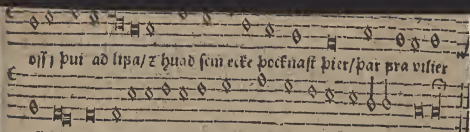 oss j þui ad lifa/ z huad sem ecke þocknast þier/ þar fra vilier